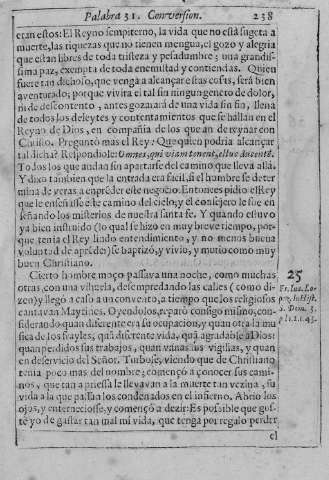 Palabra 31. Conversion. 238
eran estos: El Reyno sempiterno, la vida que no está sugeta a
muerte, las riquezas que no tienen mengua, el gozo y alegria
que estan libres de toda tristeza y pesadumbre; una grandis-
sima paz, exempta de toda enemistad y contiendas. Quien
fuere tan dichoso, que venga a alcançar estas cosas, será bien
aventurado; porque vivira el tal sin ningun genero de dolor,
ni descontento, antes gozará de una vida sin fin, llena
de todos los deleytes y contentamientos que se hallan en el
Reyno de Dios, en compañia de los que an de reynar con
Christo. Preguntó mas el Rey: Que quien podria alcançar
tal dicha? Respondiole: Omnes, qui viam tenent, illuc ducentẽ.
Todos los que andan sin apartarse del camino que lleva allá.
Y dixo tambien que la entrada era facil, si el hombre se deter
mina de veras a emprẽder este negocio. Entonces pidio el Rey
que le enseñasse este camino del cielo, y el consejero le fue en
señando los misterios de nuestra santa fe. Y quando estuvo
ya bien instruido (lo qual se hizo en muy breve tiempo, por-
que tenia el Rey lindo entendimiento, y no menos buena
voluntad de aprẽder) se baptizó, y vivio, y murio como muy
buen Christiano.
Cierto hombre moço passava una noche, como muchas
otras, con una vihuela, desempedrando las calles (como di-
zen) y llegó a caso a un convento, a tiempo que los religiosos
cantavan Maytines. Oyendolos, reparó consigo mismo, con-
siderando quan diferente era su ocupacion, y quan otra la mu
sica de los frayles, quã diferente vida, quã agradable a Dios:
quan perdidos sus trabajos, quan vanas sus vigilias, y quan
en deservicio del Señor. Turbose, viendo que de Christiano
tenia poco mas del nombre; començó a conocer sus cami-
nos, y que tan a priessa le llevavan a la muerte tan vezina, su
vida a la que passan los condenados en el infierno. Abrio los
ojos, y enterneciosse, y començó a dezir: Es possible que gus-
te yo de gastar tan mal mi vida, que tenga por regalo perder
el
25
Fr. Iuã. Lo-
pez, in Hist.
S. Dom. 3.
p. li. 1. c. 43.